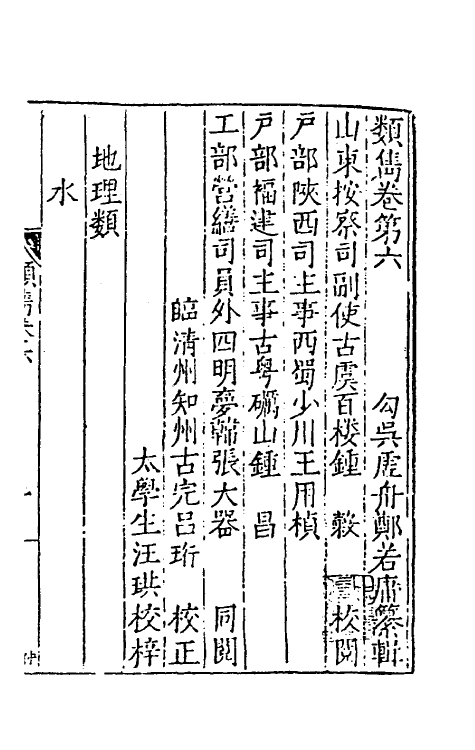 類雋卷第六 勾吳虛舟鄭若庸纂輯
山東按察司副使古虞百樓鍾 穀 校閱
戶部陝西司主事西蜀少川王用楨
戶部福建司主事古粵礪山鍾 昌
工部營繕司員外四明夢鶴張大器 同閱
臨清州知州古完呂珩 校正
太學生汪珙校梓
地理類
水
類雋卷六